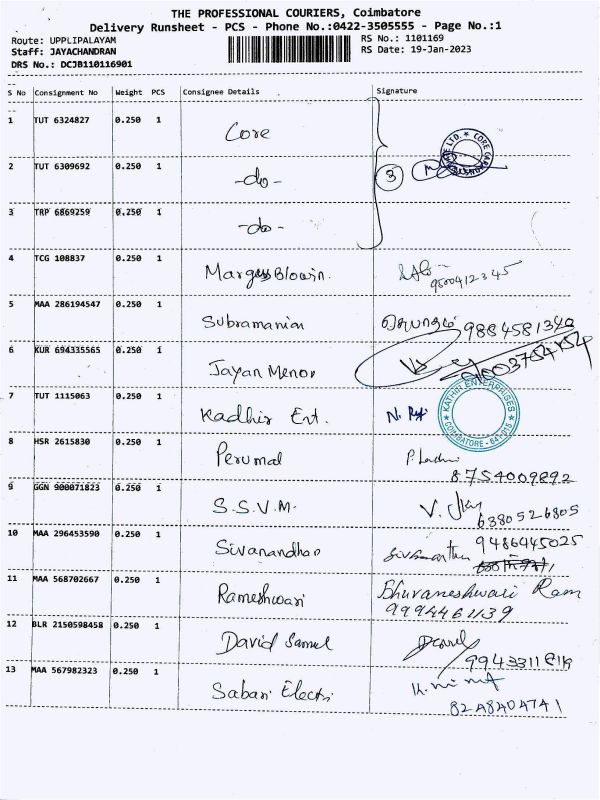 THE PROFESSIONAL COURIERS, Coimbatore
Delivery Runsheet - PCS - Phone No.:0422-3505555 - Page No.:1
Route: UPPLIPALAYAM RS No.: 1101169
Staff: JAYACHANDRAN RS Date: 19-Jan-2023
DRS No.: DCJB110116901
S No Consignment No Weight PCS Consignee Details Signature
1 TUT 6324827 0.250 1 Core
2 TUT 6309692 0.250 1 -do- 3
3 TRP 6869259 0.250 1 -do-
4 TCG 108837 0.250 1 9500412345
5 MAA 286194547 0.250 1 Subramanian 9884581340
6 KUR 694335565 0.250 1 Jayan Menon
7 TUT 1115063 0.250 1 Kadhir Ent. KATHIR ENTERPRISES COIMBATORE - 641 015
8 HSR 2615830 0.250 1 Perumal 8754009892
9 GGN 900071823 0.250 1 S.S.V.M. 6380526805
10 MAA 296453590 0.250 1 Sivanandhan 9486445025
11 MAA 568702667 0.250 1 Rameshwari Bhuvaneshwari Ram
9994461139
12 BLR 2150598458 0.250 1 David Samuel
13 MAA 567982323 0.250 1 Sabari Electri